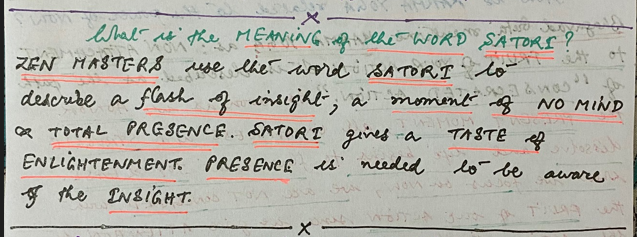 x
What is the MEANING of the WORD SATORI?
ZEN MASTERS use the word SATORI to
describe a flash of insight, a moment of NO MIND
& TOTAL PRESENCE. SATORI gives a TASTE of
ENLIGHTENMENT. PRESENCE is needed to be aware
of the INSIGHT.
x